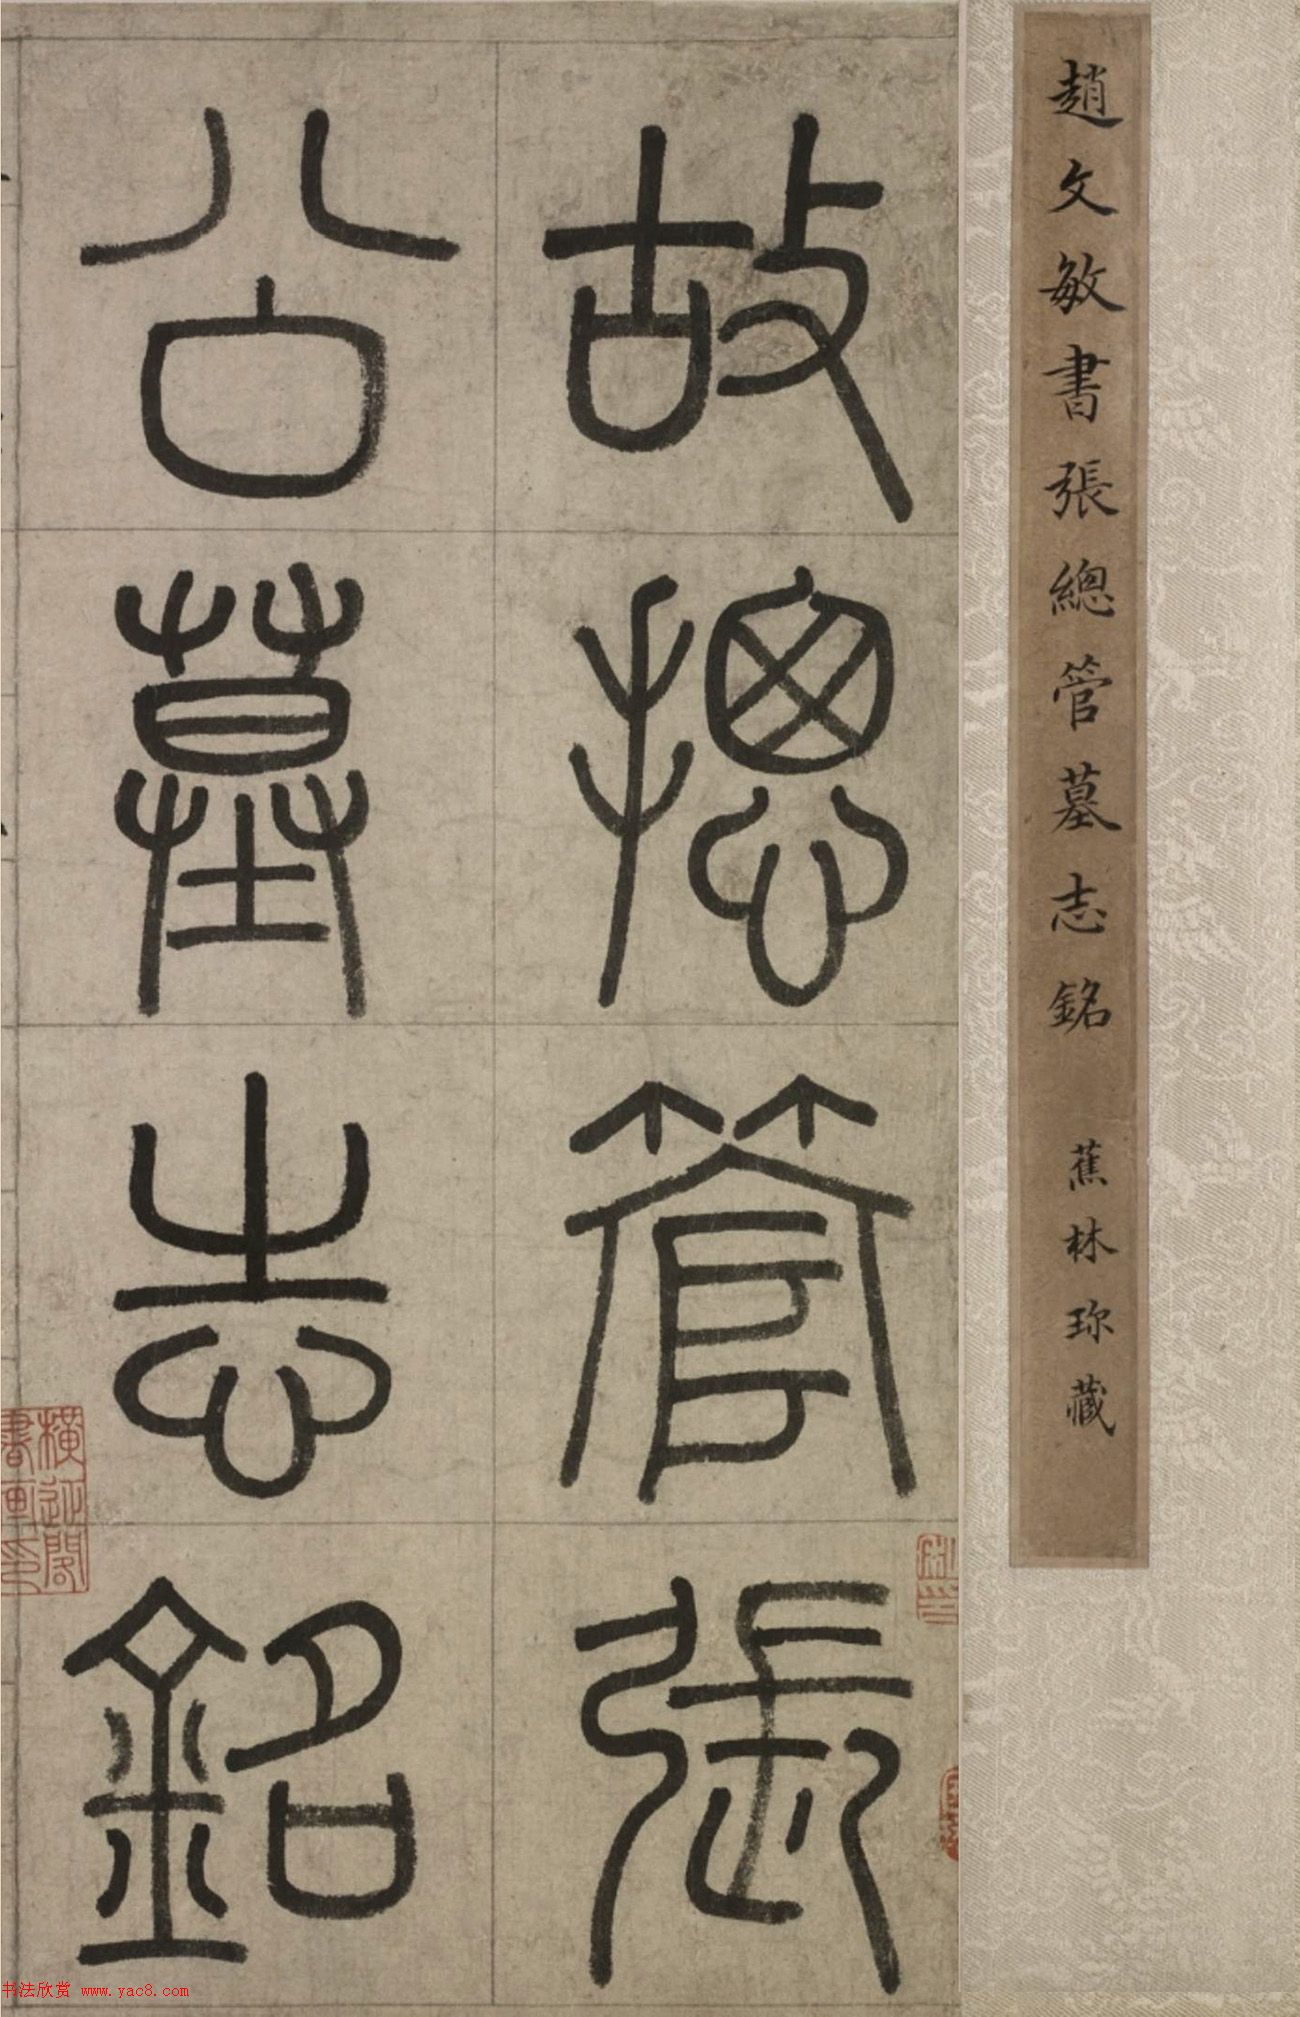 趙文敏書張總管墓志銘 蕉林珎藏
故摠管張
公墓志銘
橫迆閣
書畫印
书法欣赏 www.yac8.com